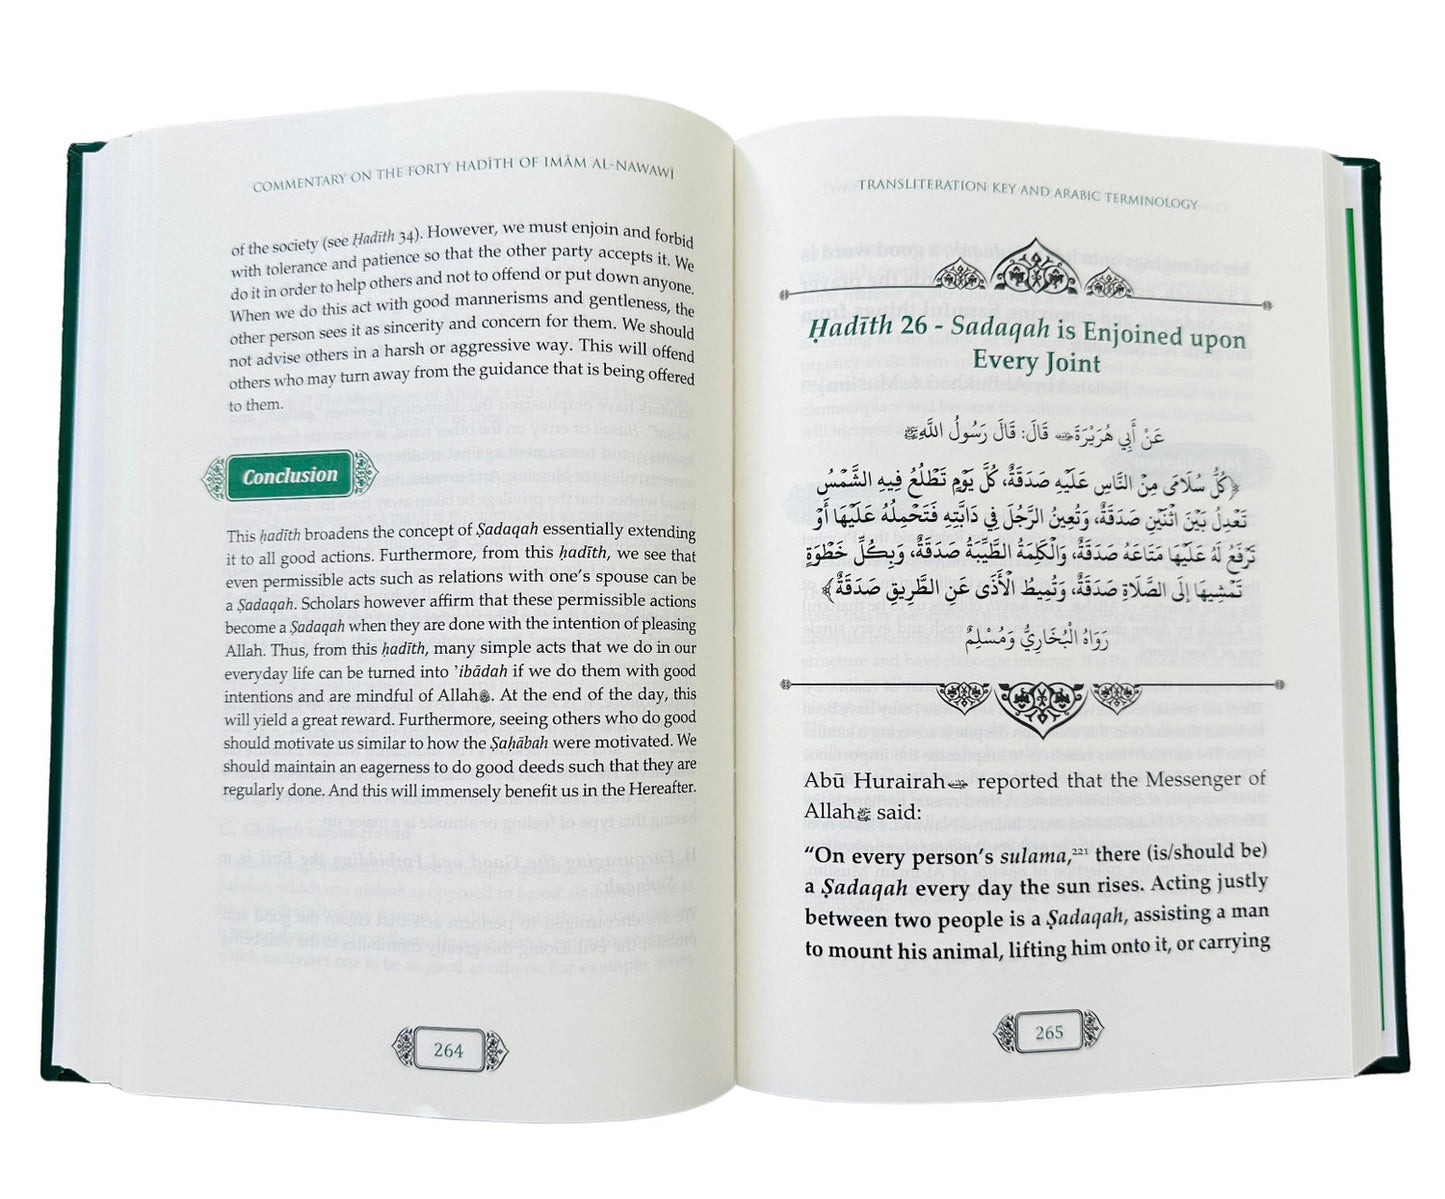 COMMENTARY ON THE FORTY HADĪTH OF IMĀM AL-NAWAWĪ
of the society (see Ḥadīth 34). However, we must enjoin and forbid
with tolerance and patience so that the other party accepts it. We
do it in order to help others and not to offend or put down anyone.
When we do this act with good mannerisms and gentleness, the
other person sees it as sincerity and concern for them. We should
not advise others in a harsh or aggressive way. This will offend
others who may turn away from the guidance that is being offered
to them.
Conclusion
This ḥadīth broadens the concept of Ṣadaqah essentially extending
it to all good actions. Furthermore, from this ḥadīth, we see that
even permissible acts such as relations with one's spouse can be
a Ṣadaqah. Scholars however affirm that these permissible actions
become a Ṣadaqah when they are done with the intention of pleasing
Allah. Thus, from this ḥadīth, many simple acts that we do in our
everyday life can be turned into 'ibādah if we do them with good
intentions and are mindful of Allah. At the end of the day, this
will yield a great reward. Furthermore, seeing others who do good
should motivate us similar to how the Ṣaḥābah were motivated. We
should maintain an eagerness to do good deeds such that they are
regularly done. And this will immensely benefit us in the Hereafter.
264
TRANSLITERATION KEY AND ARABIC TERMINOLOGY
Ḥadīth 26 - Sadaqah is Enjoined upon
Every Joint
عَنْ أَبِي هُرَيْرَةَ قَالَ: قَالَ رَسُولُ اللَّهِ ﷺ
﴿كُلُّ سُلَامَى مِنَ النَّاسِ عَلَيْهِ صَدَقَةٌ، كُلَّ يَوْمٍ تَطْلُعُ فِيهِ الشَّمْسُ
تَعْدِلُ بَيْنَ اثْنَيْنِ صَدَقَةٌ، وَتُعِينُ الرَّجُلَ فِي دَابَّتِهِ فَتَحْمِلُهُ عَلَيْهَا أَوْ
تَرْفَعُ لَهُ عَلَيْهَا مَتَاعَهُ صَدَقَةٌ، وَالْكَلِمَةُ الطَّيِّبَةُ صَدَقَةٌ، وَبِكُلِّ خَطْوَةٍ
تَمْشِيهَا إِلَى الصَّلَاةِ صَدَقَةٌ، وَتُمِيطُ الْأَذَى عَنِ الطَّرِيقِ صَدَقَةٌ﴾
رَوَاهُ الْبُخَارِيُّ وَمُسْلِمٌ
Abū Hurairah reported that the Messenger of
Allahﷺ said:
“On every person's sulama,²²¹ there (is/should be)
a Ṣadaqah every day the sun rises. Acting justly
between two people is a Ṣadaqah, assisting a man
to mount his animal, lifting him onto it, or carrying
265